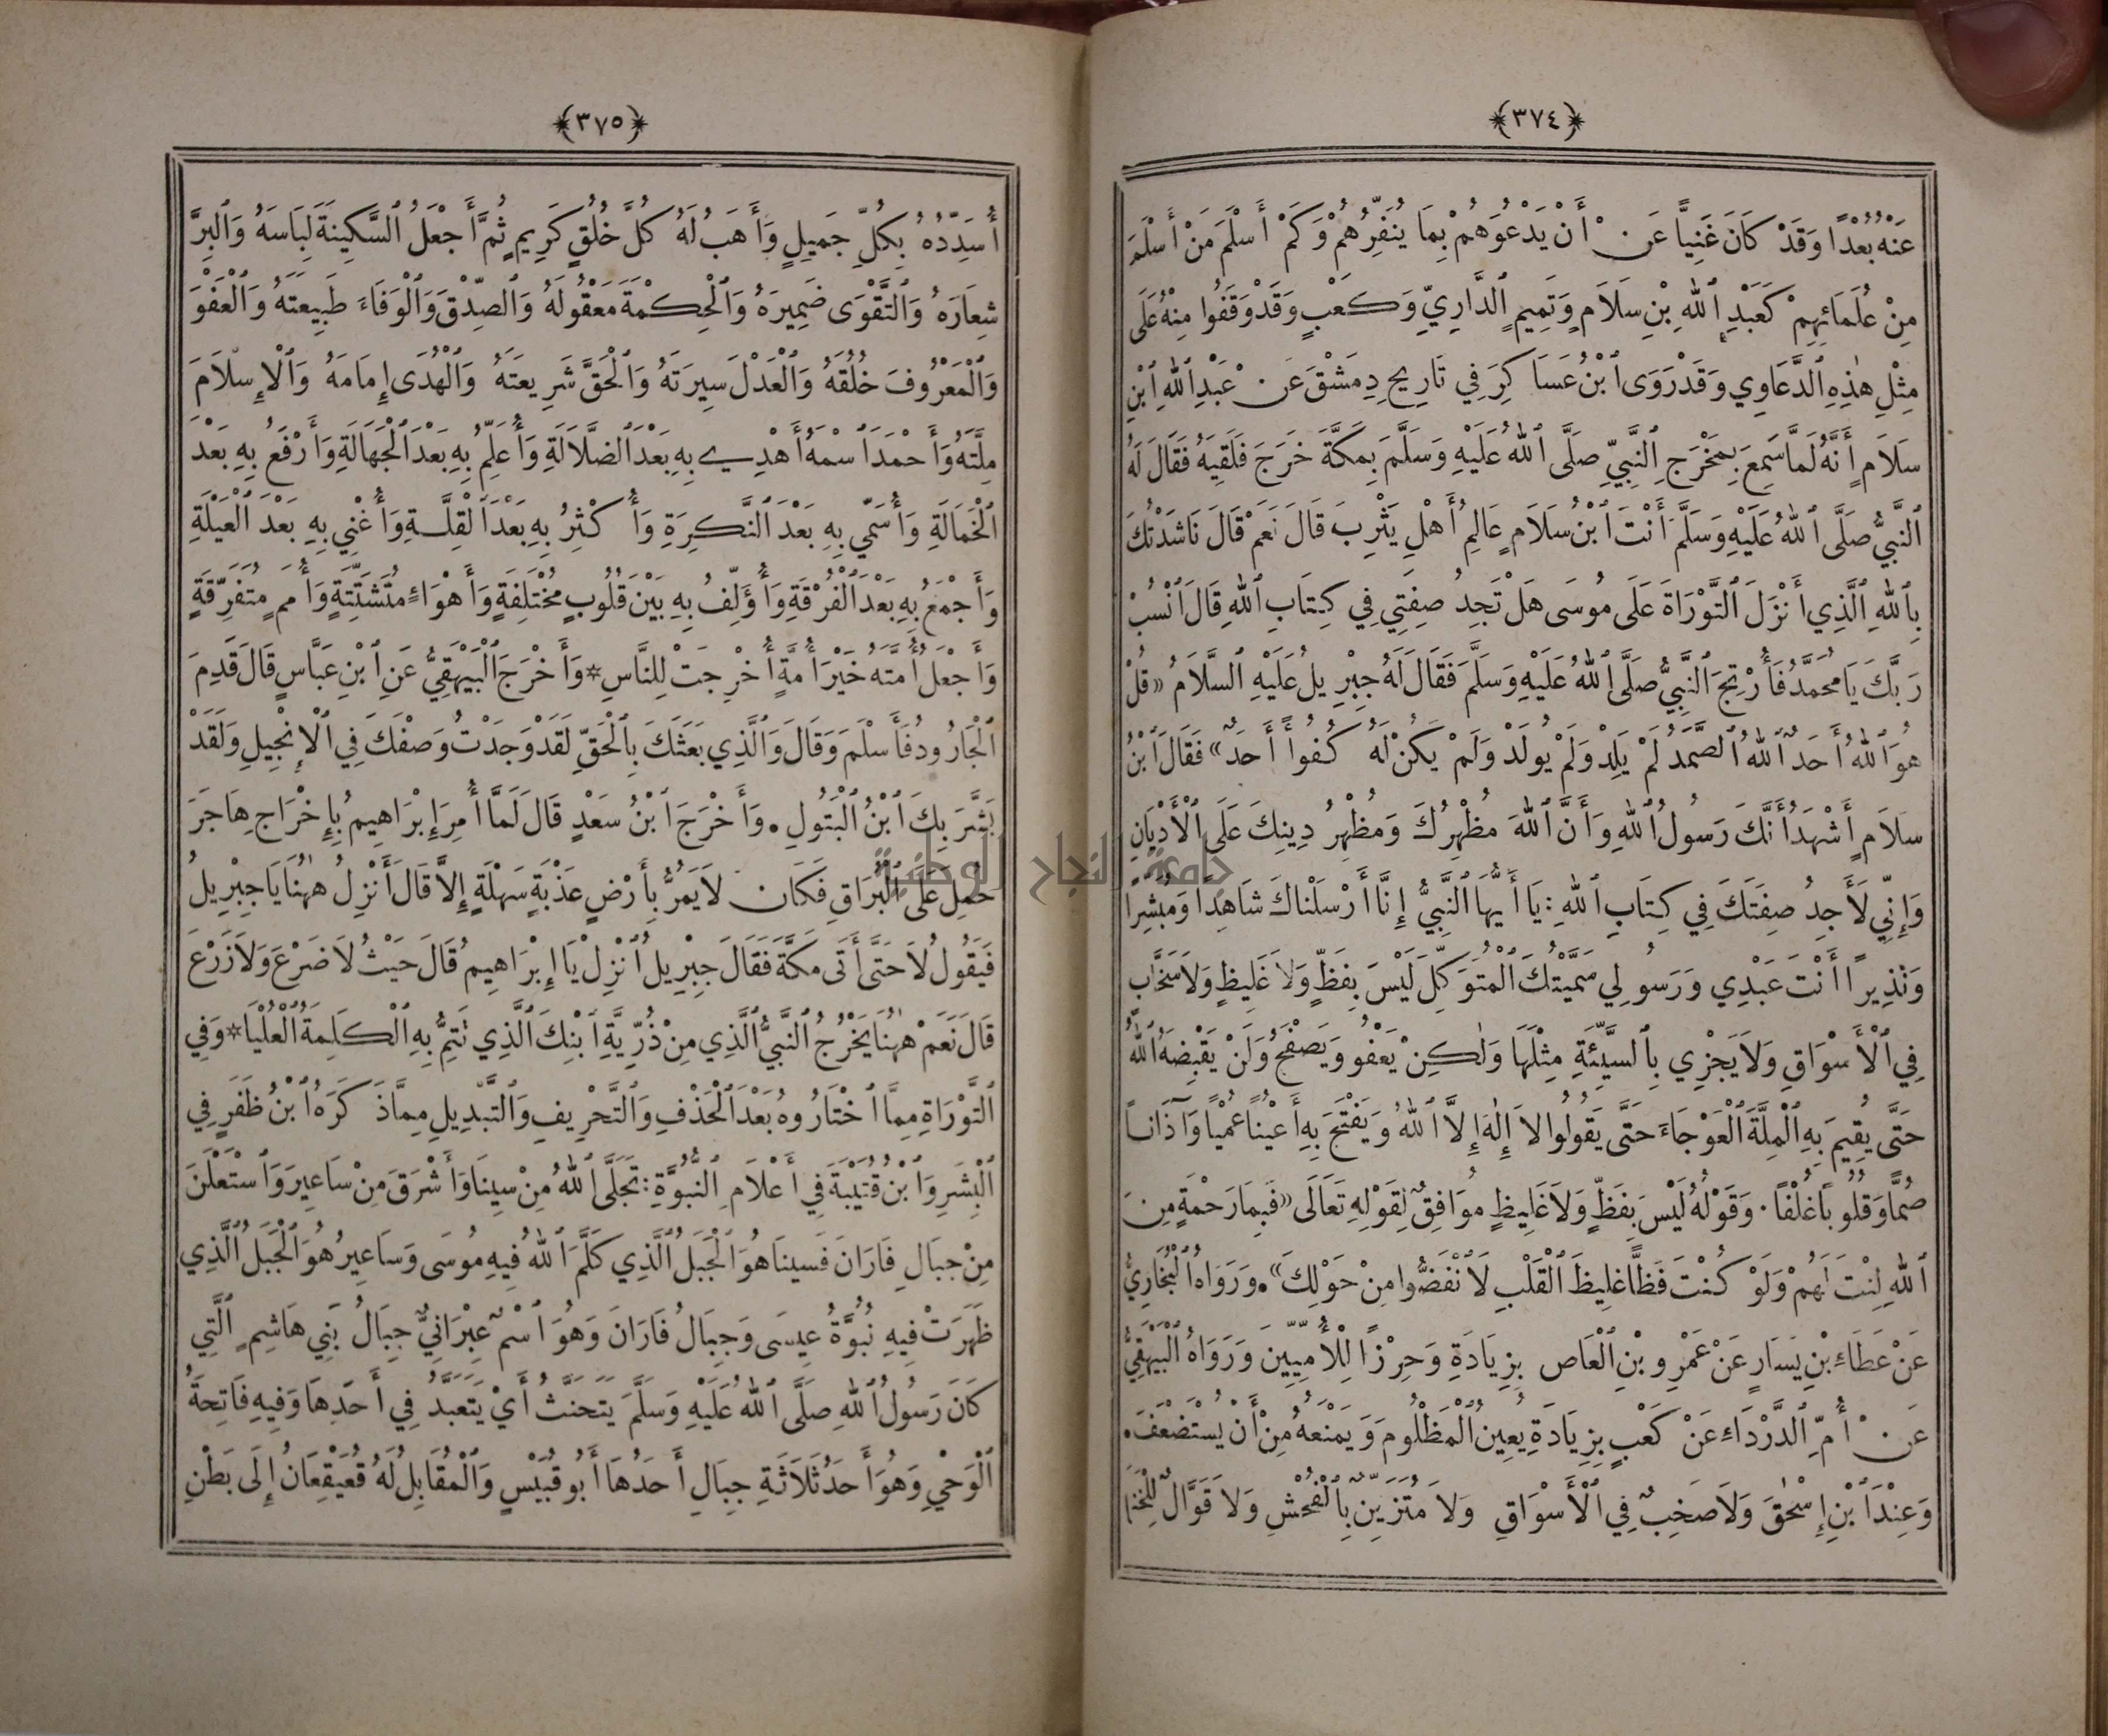 ﴿٣٧٤﴾
عَنْهُ بُعْدًا وَقَدْ كَانَ غَنِيًّا عَنْ أَنْ يَدْعُوَهُمْ بِمَا يُنَفِّرُهُمْ وَكَمْ أَسْلَمَ مَنْ أَسْلَمَ
مِنْ عُلَمَائِهِمْ كَعَبْدِ ٱللهِ بْنِ سَلَامٍ وَتَمِيمٍ ٱلدَّارِيِّ وَكَعْبٍ وَقَدْ وَقَفُوا مِنْهُ عَلَى
مِثْلِ هٰذِهِ ٱلدَّعَاوِي وَقَدْ رَوَى ٱبْنُ عَسَاكِرَ فِي تَارِيخِ دِمَشْقَ عَنْ عَبْدِ ٱللهِ ٱبْنِ
سَلَامٍ أَنَّهُ لَمَّا سَمِعَ بِمَخْرَجِ ٱلنَّبِيِّ صَلَّى ٱللهُ عَلَيْهِ وَسَلَّمَ بِمَكَّةَ خَرَجَ فَلَقِيَهُ فَقَالَ لَهُ
ٱلنَّبِيُّ صَلَّى ٱللهُ عَلَيْهِ وَسَلَّمَ أَنْتَ ٱبْنُ سَلَامٍ عَالِمُ أَهْلِ يَثْرِبَ قَالَ نَعَمْ قَالَ نَاشَدْتُكَ
بِٱللهِ ٱلَّذِي أَنْزَلَ ٱلتَّوْرَاةَ عَلَى مُوسَى هَلْ تَجِدُ صِفَتِي فِي كِتَابِ ٱللهِ قَالَ ٱنْسُبْ
رَبَّكَ يَا مُحَمَّدُ فَأُرْتِجَ ٱلنَّبِيُّ صَلَّى ٱللهُ عَلَيْهِ وَسَلَّمَ فَقَالَ لَهُ جِبْرِيلُ عَلَيْهِ ٱلسَّلَامُ «قُلْ
هُوَ ٱللهُ أَحَدٌ ٱللهُ ٱلصَّمَدُ لَمْ يَلِدْ وَلَمْ يُولَدْ وَلَمْ يَكُنْ لَهُ كُفُوًا أَحَدٌ» فَقَالَ ٱبْنُ
سَلَامٍ أَشْهَدُ أَنَّكَ رَسُولُ ٱللهِ وَأَنَّ ٱللهَ مُظْهِرُكَ وَمُظْهِرُ دِينِكَ عَلَى ٱلْأَدْيَانِ
وَإِنِّي لَأَجِدُ صِفَتَكَ فِي كِتَابِ ٱللهِ: يَا أَيُّهَا ٱلنَّبِيُّ إِنَّا أَرْسَلْنَاكَ شَاهِدًا وَمُبَشِّرًا
وَنَذِيرًا أَنْتَ عَبْدِي وَرَسُولِي سَمَّيْتُكَ ٱلْمُتَوَكِّلَ لَيْسَ بِفَظٍّ وَلَا غَلِيظٍ وَلَا سَخَّابٍ
فِي ٱلْأَسْوَاقِ وَلَا يَجْزِي بِٱلسَّيِّئَةِ مِثْلَهَا وَلٰكِنْ يَعْفُو وَيَصْفَحُ وَلَنْ يَقْبِضَهُ ٱللهُ
حَتَّى يُقِيمَ بِهِ ٱلْمِلَّةَ ٱلْعَوْجَاءَ حَتَّى يَقُولُوا لَا إِلٰهَ إِلَّا ٱللهُ وَيَفْتَحَ بِهِ أَعْيُنًا عُمْيًا وَآذَانًا
صُمًّا وَقُلُوبًا غُلْفًا. وَقَوْلُهُ لَيْسَ بِفَظٍّ وَلَا غَلِيظٍ مُوَافِقٌ لِقَوْلِهِ تَعَالَى «فَبِمَا رَحْمَةٍ مِنَ
ٱللهِ لِنْتَ لَهُمْ وَلَوْ كُنْتَ فَظًّا غَلِيظَ ٱلْقَلْبِ لَٱنْفَضُّوا مِنْ حَوْلِكَ». وَرَوَاهُ ٱلْبُخَارِيُّ
عَنْ عَطَاءِ بْنِ يَسَارٍ عَنْ عَمْرِو بْنِ ٱلْعَاصِ بِزِيَادَةِ وَحِرْزًا لِلْأُمِّيِّينَ وَرَوَاهُ ٱلْبَيْهَقِيُّ
عَنْ أُمِّ ٱلدَّرْدَاءِ عَنْ كَعْبٍ بِزِيَادَةِ يُعِينُ ٱلْمَظْلُومَ وَيَمْنَعُهُ مِنْ أَنْ يُسْتَضْعَفَ.
وَعِنْدَ ٱبْنِ إِسْحٰقَ وَلَا صَخِبٌ فِي ٱلْأَسْوَاقِ وَلَا مُتَزَيِّنٌ بِٱلْفُحْشِ وَلَا قَوَّالٌ لِلْخَنَا
﴿٣٧٥﴾
أُسَدِّدُهُ بِكُلِّ جَمِيلٍ وَأَهَبُ لَهُ كُلَّ خُلُقٍ كَرِيمٍ ثُمَّ أَجْعَلُ ٱلسَّكِينَةَ لِبَاسَهُ وَٱلْبِرَّ
شِعَارَهُ وَٱلتَّقْوَى ضَمِيرَهُ وَٱلْحِكْمَةَ مَعْقُولَهُ وَٱلصِّدْقَ وَٱلْوَفَاءَ طَبِيعَتَهُ وَٱلْعَفْوَ
وَٱلْمَعْرُوفَ خُلُقَهُ وَٱلْعَدْلَ سِيرَتَهُ وَٱلْحَقَّ شَرِيعَتَهُ وَٱلْهُدَى إِمَامَهُ وَٱلْإِسْلَامَ
مِلَّتَهُ وَأَحْمَدَ ٱسْمَهُ أَهْدِي بِهِ بَعْدَ ٱلضَّلَالَةِ وَأُعَلِّمُ بِهِ بَعْدَ ٱلْجَهَالَةِ وَأَرْفَعُ بِهِ بَعْدَ
ٱلْخَمَالَةِ وَأُسَمِّي بِهِ بَعْدَ ٱلنَّكِرَةِ وَأُكْثِرُ بِهِ بَعْدَ ٱلْقِلَّةِ وَأُغْنِي بِهِ بَعْدَ ٱلْعَيْلَةِ
وَأَجْمَعُ بِهِ بَعْدَ ٱلْفُرْقَةِ وَأُؤَلِّفُ بِهِ بَيْنَ قُلُوبٍ مُخْتَلِفَةٍ وَأَهْوَاءٍ مُتَشَتِّتَةٍ وَأُمَمٍ مُتَفَرِّقَةٍ
وَأَجْعَلُ أُمَّتَهُ خَيْرَ أُمَّةٍ أُخْرِجَتْ لِلنَّاسِ* وَأَخْرَجَ ٱلْبَيْهَقِيُّ عَنِ ٱبْنِ عَبَّاسٍ قَالَ قَدِمَ
ٱلْجَارُودُ فَأَسْلَمَ وَقَالَ وَٱلَّذِي بَعَثَكَ بِٱلْحَقِّ لَقَدْ وَجَدْتُ وَصْفَكَ فِي ٱلْإِنْجِيلِ وَلَقَدْ
بَشَّرَ بِكَ ٱبْنُ ٱلْبَتُولِ. وَأَخْرَجَ ٱبْنُ سَعْدٍ قَالَ لَمَّا أُمِرَ إِبْرَاهِيمُ بِإِخْرَاجِ هَاجَرَ
حُمِلَ عَلَى ٱلْبُرَاقِ فَكَانَ لَا يَمُرُّ بِأَرْضٍ عَذْبَةٍ سَهْلَةٍ إِلَّا قَالَ أَنْزِلُ هٰهُنَا يَا جِبْرِيلُ
فَيَقُولُ لَا حَتَّى أَتَى مَكَّةَ فَقَالَ جِبْرِيلُ ٱنْزِلْ يَا إِبْرَاهِيمُ قَالَ حَيْثُ لَا ضَرْعَ وَلَا زَرْعَ
قَالَ نَعَمْ هٰهُنَا يَخْرُجُ ٱلنَّبِيُّ ٱلَّذِي مِنْ ذُرِّيَّةِ ٱبْنِكَ ٱلَّذِي تَتِمُّ بِهِ ٱلْكَلِمَةُ ٱلْعُلْيَا* وَفِي
ٱلتَّوْرَاةِ مِمَّا ٱخْتَارُوهُ بَعْدَ ٱلْحَذْفِ وَٱلتَّحْرِيفِ وَٱلتَّبْدِيلِ مِمَّا ذَكَرَهُ ٱبْنُ ظَفَرٍ فِي
ٱلْبِشَرِ وَٱبْنُ قُتَيْبَةَ فِي أَعْلَامِ ٱلنُّبُوَّةِ: تَجَلَّى ٱللهُ مِنْ سِينَا وَأَشْرَقَ مِنْ سَاعِيرَ وَٱسْتَعْلَنَ
مِنْ جِبَالِ فَارَانَ فَسِينَا هُوَ ٱلْجَبَلُ ٱلَّذِي كَلَّمَ ٱللهُ فِيهِ مُوسَى وَسَاعِيرُ هُوَ ٱلْجَبَلُ ٱلَّذِي
ظَهَرَتْ فِيهِ نُبُوَّةُ عِيسَى وَجِبَالُ فَارَانَ وَهُوَ ٱسْمٌ عِبْرَانِيٌّ جِبَالُ بَنِي هَاشِمٍ ٱلَّتِي
كَانَ رَسُولُ ٱللهِ صَلَّى ٱللهُ عَلَيْهِ وَسَلَّمَ يَتَحَنَّثُ أَيْ يَتَعَبَّدُ فِي أَحَدِهَا وَفِيهِ فَاتِحَةُ
ٱلْوَحْيِ وَهُوَ أَحَدُ ثَلَاثَةِ جِبَالٍ أَحَدُهَا أَبُو قُبَيْسٍ وَٱلْمُقَابِلُ لَهُ قُعَيْقِعَانُ إِلَى بَطْنِ
جامعة النجاح الوطنية